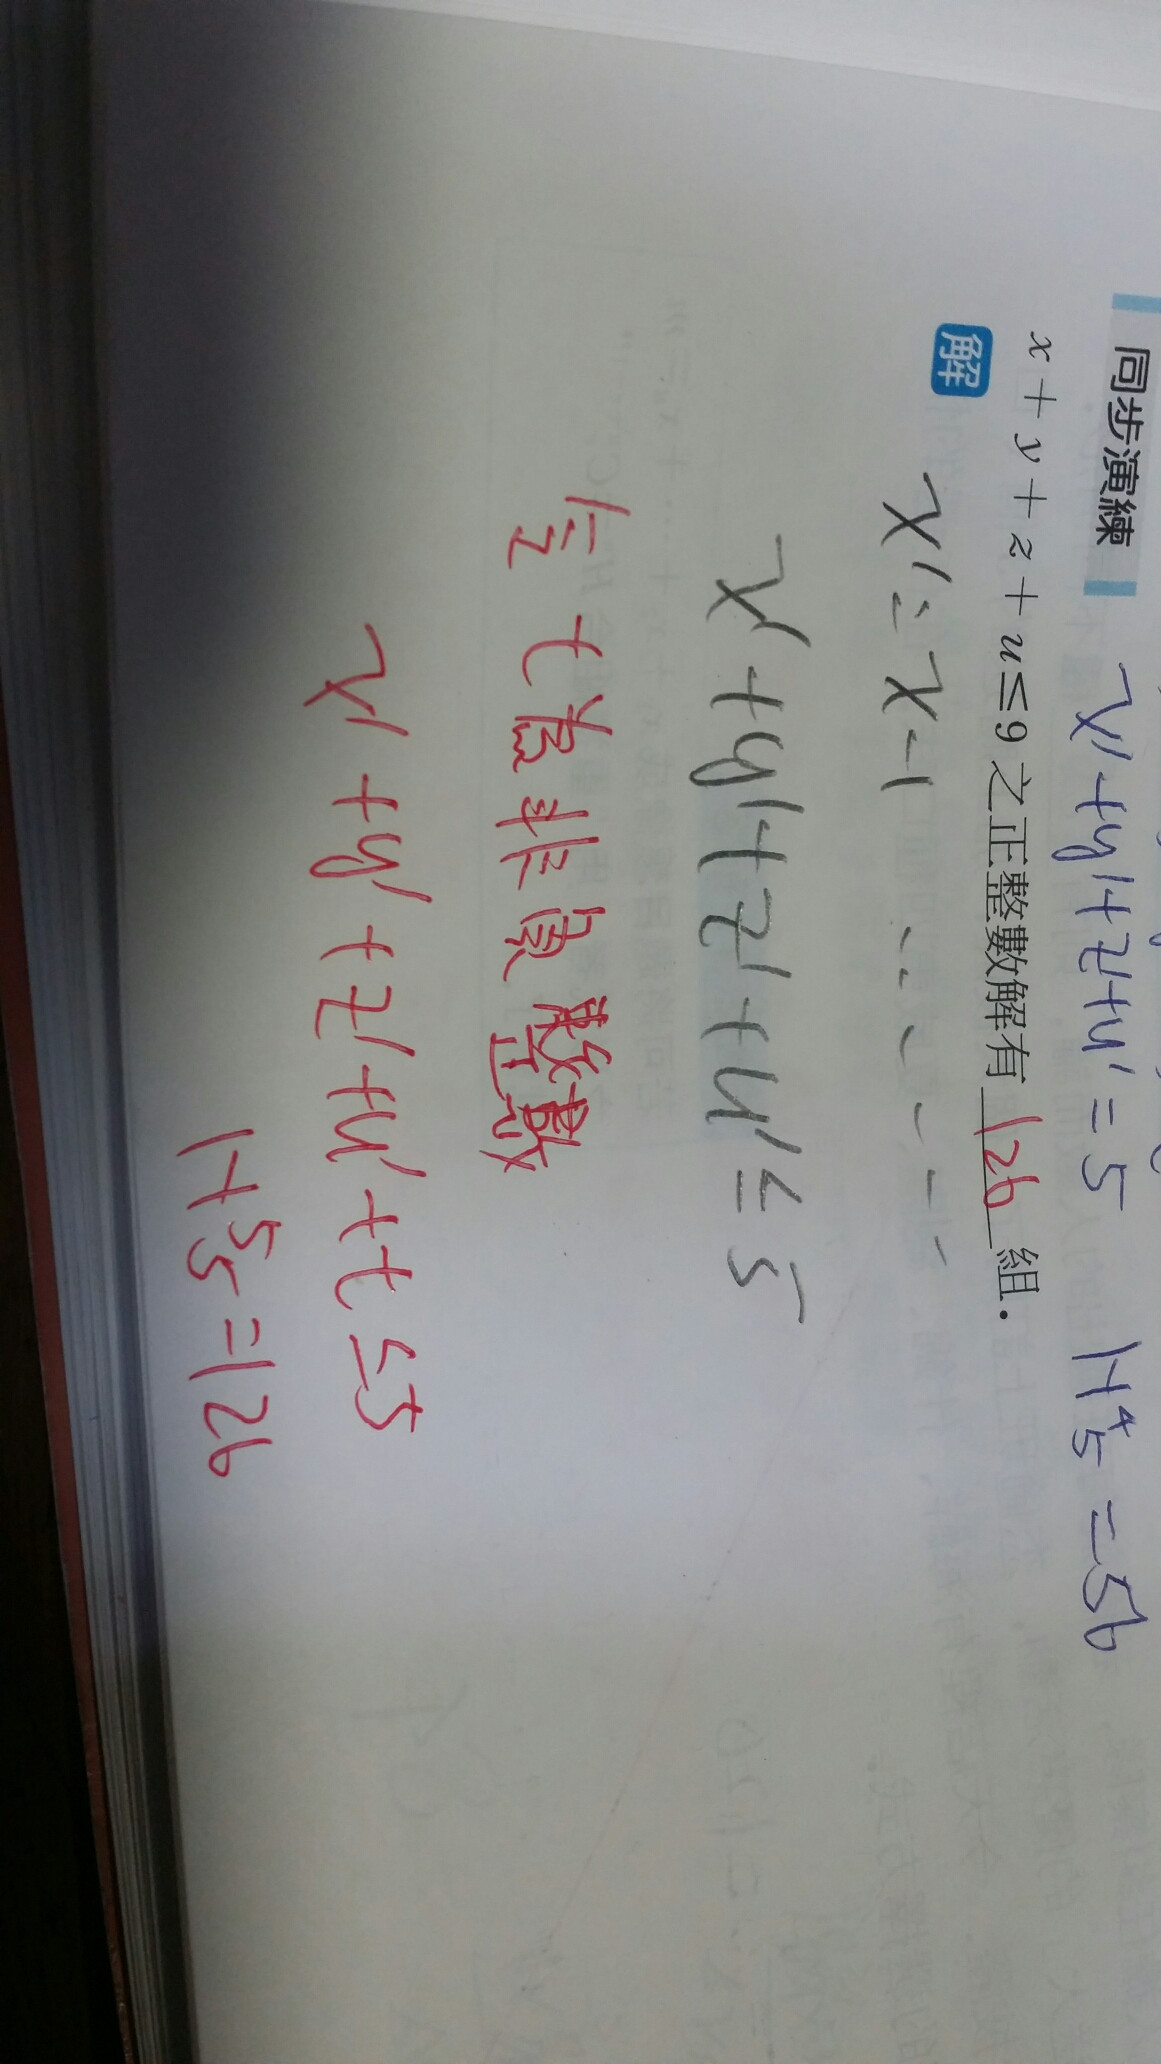 x'+y'+z'+u'=5 H⁴₅=56
同步演練
x+y+z+u≤9 之正整數解有 126 組．
解
x'=x-1
x'+y'+z'+u'≤5
令 t為非負整數
x'+y'+z'+u'+t≤5
H⁵₅=126